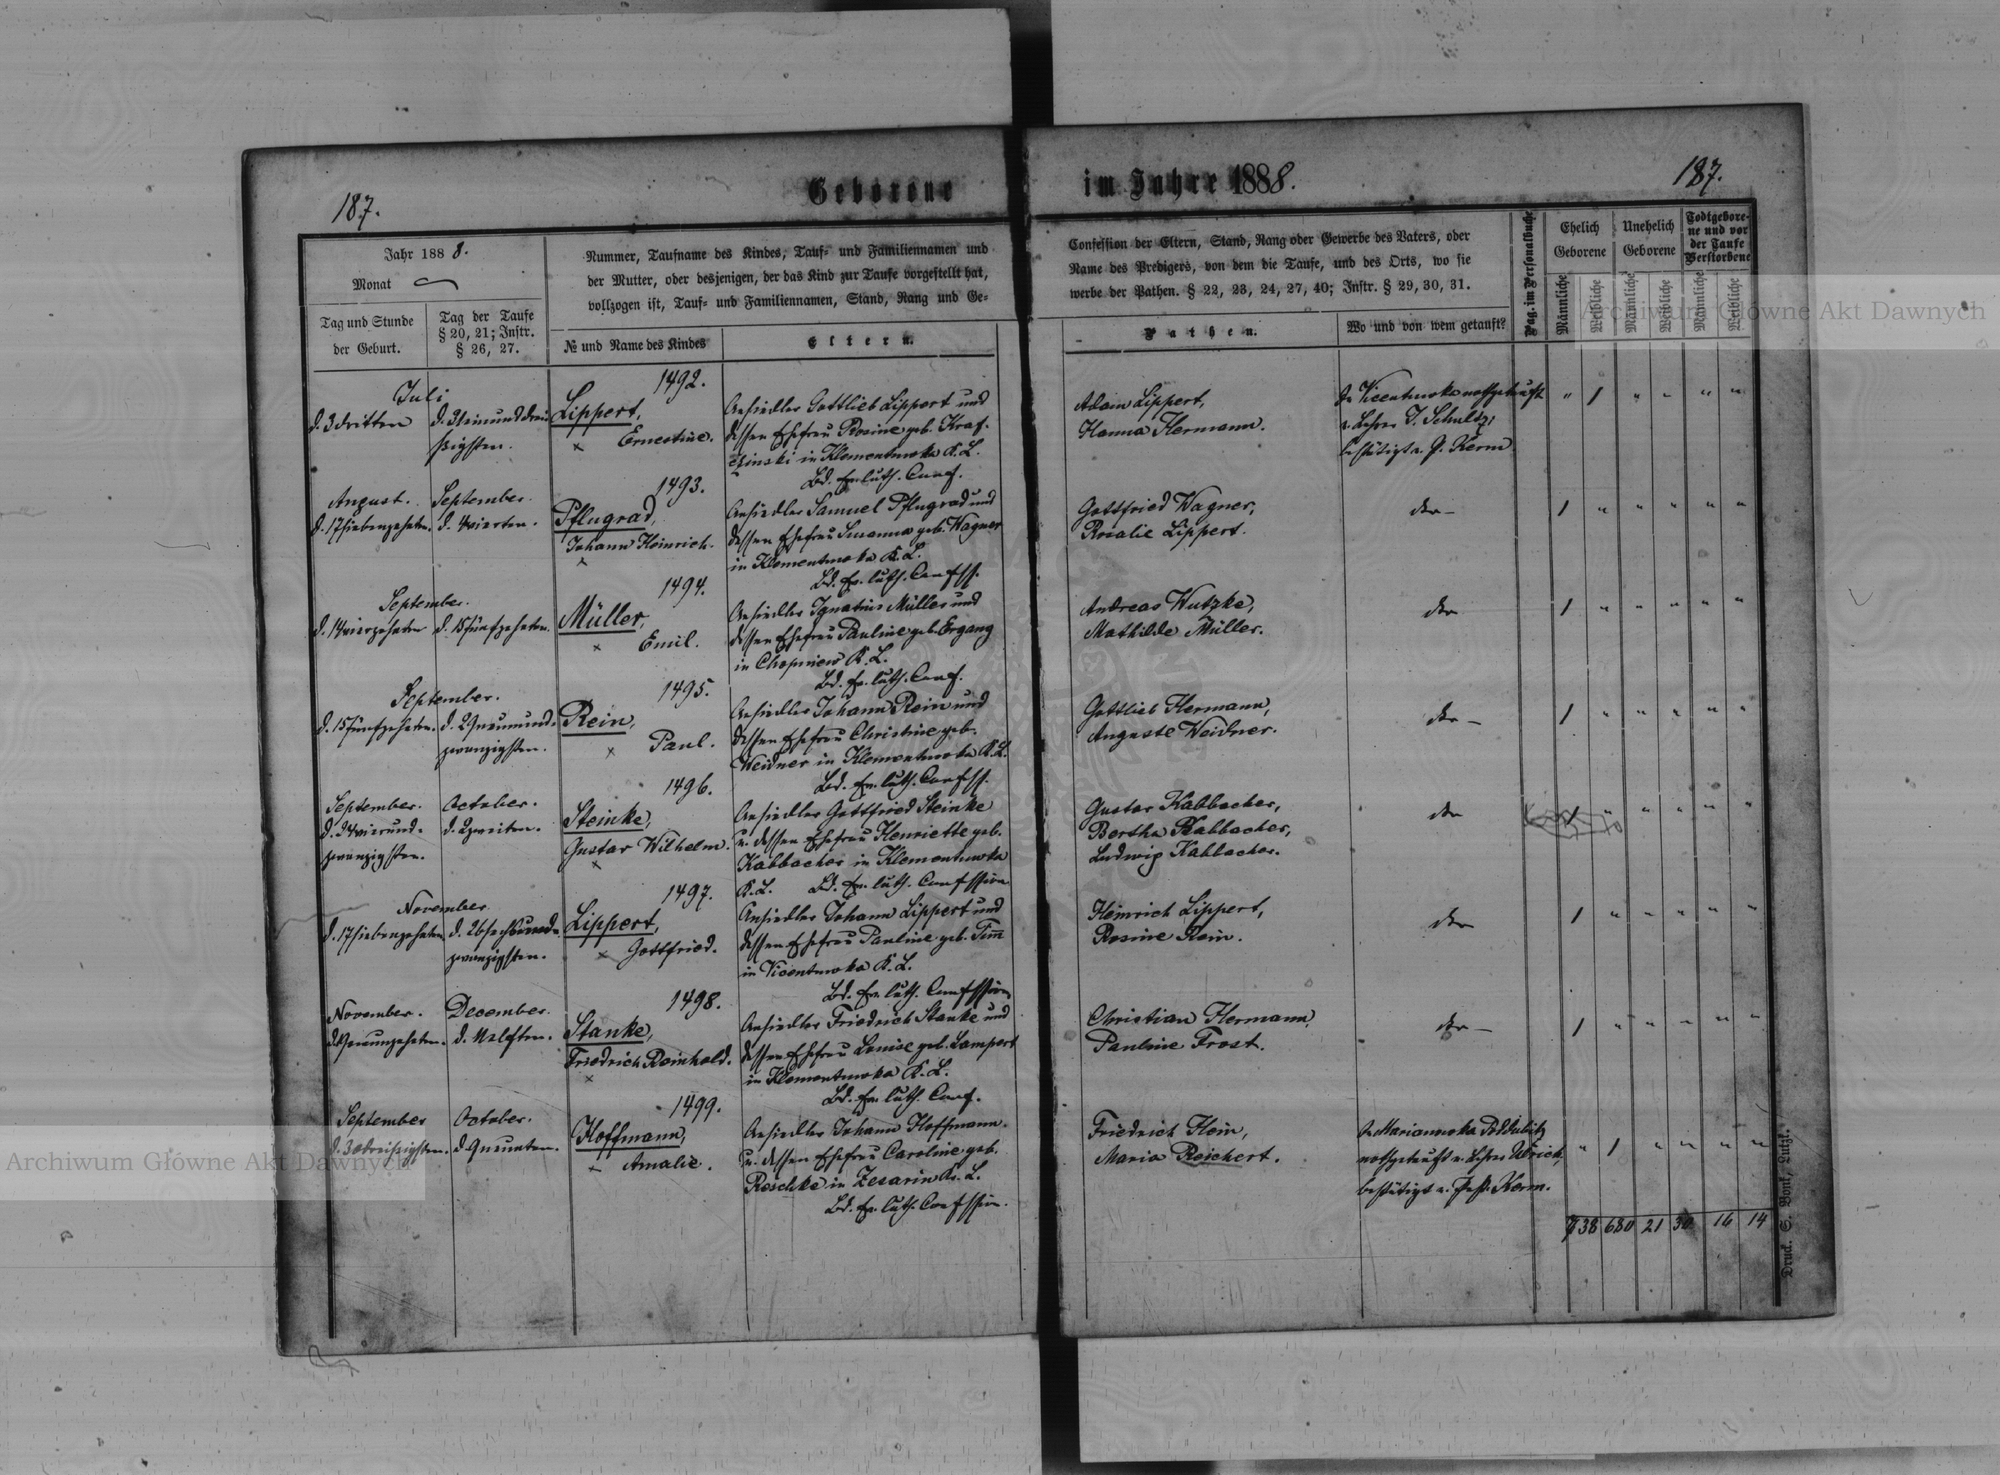 187.
Geborene
im Jahre 1888.
187.
Jahr 188 8.
Monat
Tag und Stunde
der Geburt.
Tag der Taufe
§ 20, 21; Instr.
§ 26, 27.
Nummer, Taufname des Kindes, Tauf- und Familiennamen und
der Mutter, oder desjenigen, der das Kind zur Taufe vorgestellt hat,
vollzogen ist, Tauf- und Familiennamen, Stand, Rang und Ge-
№ und Name des Kindes
Eltern.
Confession der Eltern, Stand, Rang oder Gewerbe des Vaters, oder
Name des Predigers, von dem die Taufe, und des Orts, wo sie
werbe der Pathen. § 22, 23, 24, 27, 40; Instr. § 29, 30, 31.
Pathen.
Wo und von wem getauft?
Pag. im Personalbuche
Ehelich
Geborene
Unehelich
Geborene
Todtgebore-
ne und vor
der Taufe
Verstorbene
Männliche
Weibliche
Männliche
Weibliche
Männliche
Weibliche
Juli
d. 3 dritten
d. 31 einunddrei-
ßigsten.
1492.
Lippert,
Ernestine.
Ansiedler Gottlieb Lippert und
dessen Ehefrau Rosine geb. Kraf-
czinski in Klementowka K. L.
Bd. Ev. luth. Conf.
Adam Lippert,
Hanna Hermann.
In Vicentowka nothgetauft
v. Lehrer J. Schulz,
bestätigt v. P. Kerm
" 1 " " " "
August.
d. 17 siebenzehnten.
September.
d. 4 vierten.
1493.
Pflugrad,
Johann Heinrich.
Ansiedler Samuel Pflugrad und
dessen Ehefrau Susanna geb. Wagner
in Klementowka K. L.
Bd. Ev. luth. Confss.
Gottfried Wagner,
Rosalie Lippert.
dto
1 " " " " "
September.
d. 14 vierzehnten
d. 15 fünfzehnten.
1494.
Müller,
Emil.
Ansiedler Ignatius Müller und
dessen Ehefrau Pauline geb. Ergang
in Chopniew K. L.
Bd. Ev. luth. Conf.
Andreas Wutzke,
Mathilde Müller.
dto
1 " " " " "
September.
d. 15 fünfzehnten.
d. 29 neunund-
zwanzigsten.
1495.
Rein,
Paul.
Ansiedler Johann Rein und
dessen Ehefrau Christine geb.
Weidner in Klementowka K. L.
Bd. Ev. luth. Confss.
Gottlieb Hermann,
Auguste Weidner.
dto
1 " " " " "
September.
d. 24 vierund-
zwanzigsten.
October.
d. 2 zweiten.
1496.
Steinke,
Gustav Wilhelm.
Ansiedler Gottfried Steinke
u. dessen Ehefrau Henriette geb.
Kabbacher in Klementowka
K. L. Bd. Ev. luth. Confession
Gustav Kabbacher,
Bertha Kabbacher,
Ludwig Kabbacher.
dto
1 " " " " "
November.
d. 17 siebenzehnten
d. 26 sechsund-
zwanzigsten.
1497.
Lippert,
Gottfried.
Ansiedler Johann Lippert und
dessen Ehefrau Pauline geb. Timm
in Vicentowka K. L.
Bd. Ev. luth. Confession
Heinrich Lippert,
Rosine Rein.
dto
1 " " " " "
November.
d. 19 neunzehnten.
December.
d. 11 elften.
1498.
Stanke,
Friedrich Reinhold.
Ansiedler Friedrich Stanke und
dessen Ehefrau Louise geb. Lampert
in Klementowka K. L.
Bd. Ev. luth. Conf.
Christian Hermann,
Pauline Frost.
dto
1 " " " " "
September
d. 30 dreißigsten.
October.
d. 9 neunten.
1499.
Hoffmann,
Amalie.
Ansiedler Johann Hoffmann
u. dessen Ehefrau Caroline geb.
Reschke in Zesarin K. L.
Bd. Ev. luth. Confession.
Friedrich Hein,
Maria Reichert.
In Marianowka Poddubitz
nothgetauft v. Lehrer Ulrich,
bestätigt v. Past. Kerm.
" 1 " " " "
738 680 21 30 16 14
Druck. S. Bonk, Lutzk.
Archiwum Główne Akt Dawnych
Archiwum Główne Akt Dawnych